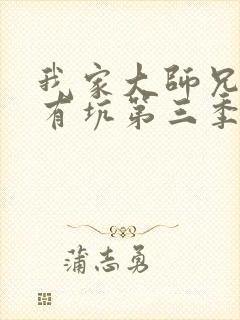 我家大师兄
有坑第三季
蒲志勇